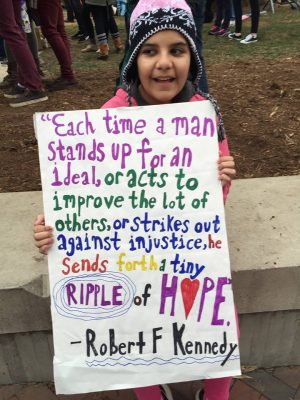 "Each time a man
stands up for an
ideal, or acts to
improve the lot of
others, or strikes out
against injustice, he
sends forth a tiny
RIPPLE of HOPE."
- Robert F Kennedy